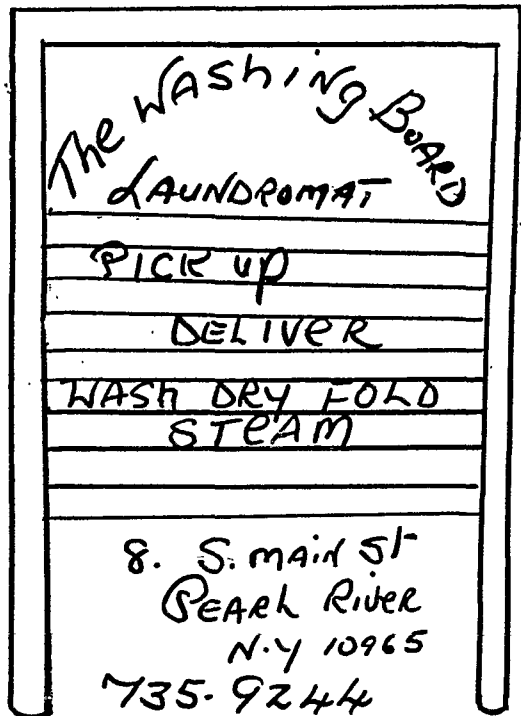 The WAShiNg BOARD
LAUNDROMAT
PICK up
DELIVeR
WASh DRY FOLD
STeAM
8. S. MAIN St
PEARL RiVeR
N.Y 10965
735-9244